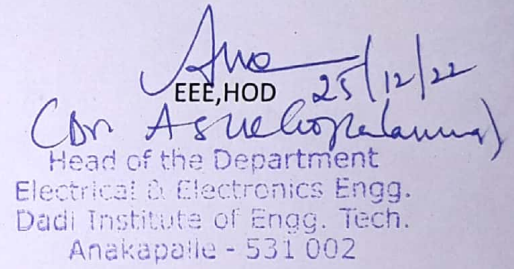 EEE,HOD
25/12/22
(Dr. A S
Head of the Department
Electrical & Electronics Engg.
Dadi Institute of Engg. Tech.
Anakapalle - 531 002